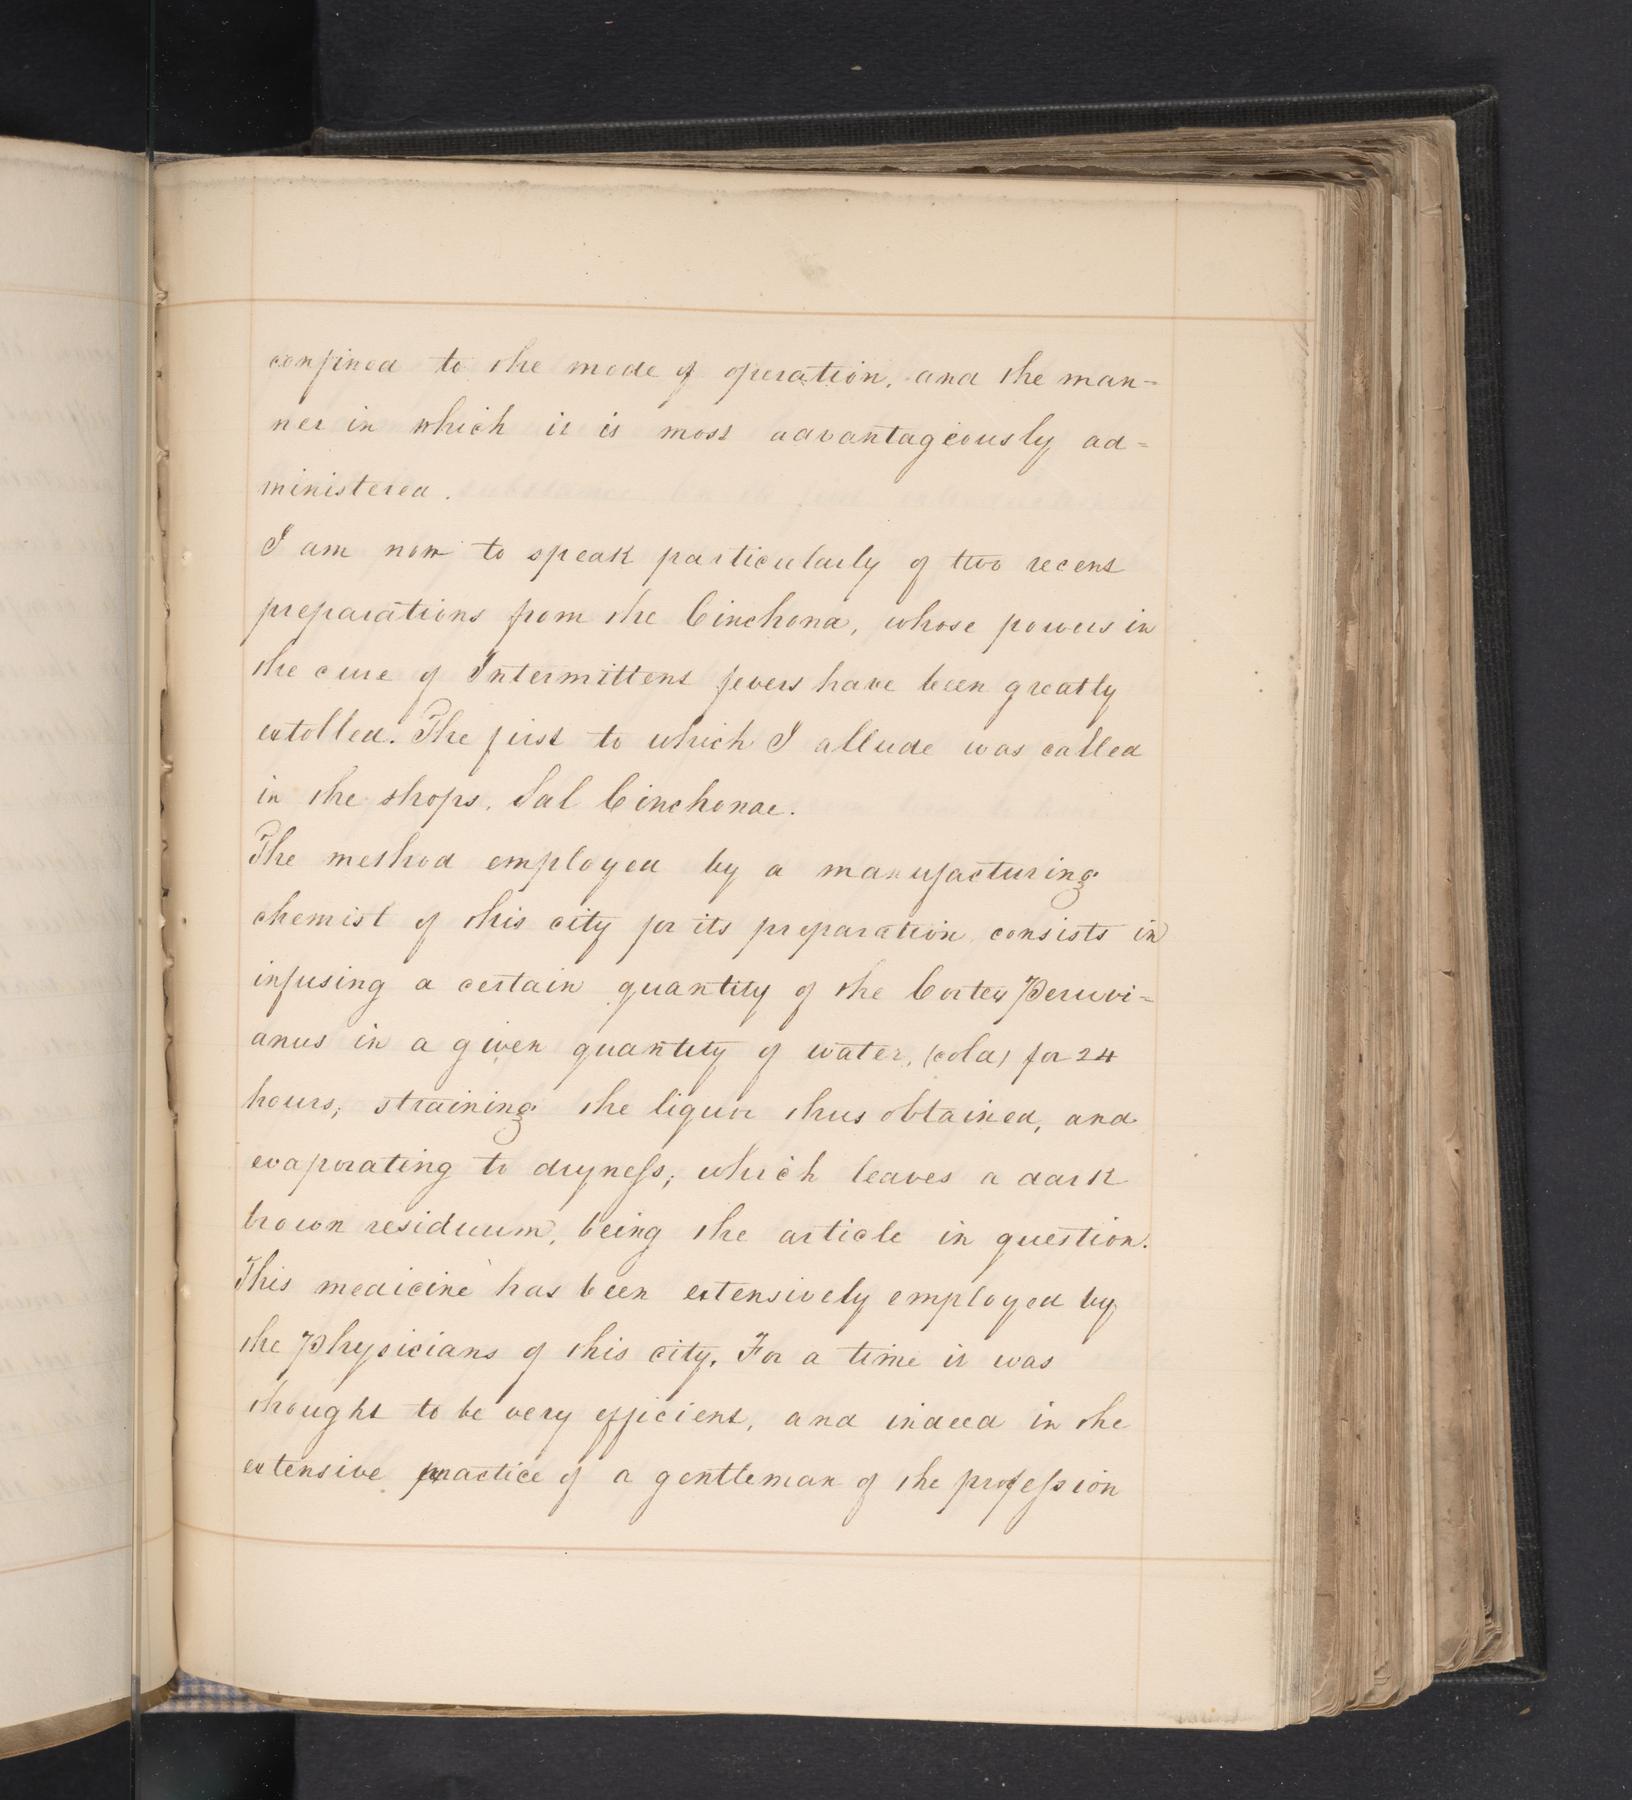 confined to the mode of operation, and the man=
ner in which it is most advantageously ad=
ministered.
I am now to speak particularly of two recent
preparations from the Cinchona, whose powers in
the cure of Intermittent fevers have been greatly
extolled. The first to which I allude was called
in the shops, Sal Cinchonae.
The method employed by a manufacturing
chemist of this city for its preparation, consists in
infusing a certain quantity of the Cortex Peruvi=
anus in a given quantity of water, (cola) for 24
hours; straining the liquor thus obtained, and
evaporating to dryneſs; which leaves a dark
brown residuum, being the article in question.
This medicine has been extensively employed by
the Physicians of this city. For a time it was
thought to be very efficient, and indeed in the
extensive practice of a gentleman of the profeſsion